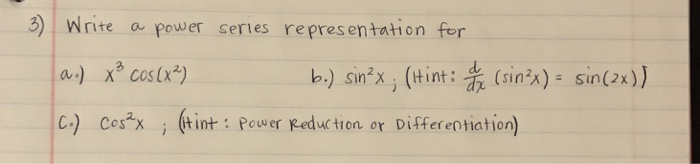 3) Write a power series representation for
a.) x³ cos(x²) b.) sin²x ; (Hint: d/dx (sin²x) = sin(2x))
C.) cos²x ; (Hint : Power Reduction or Differentiation)